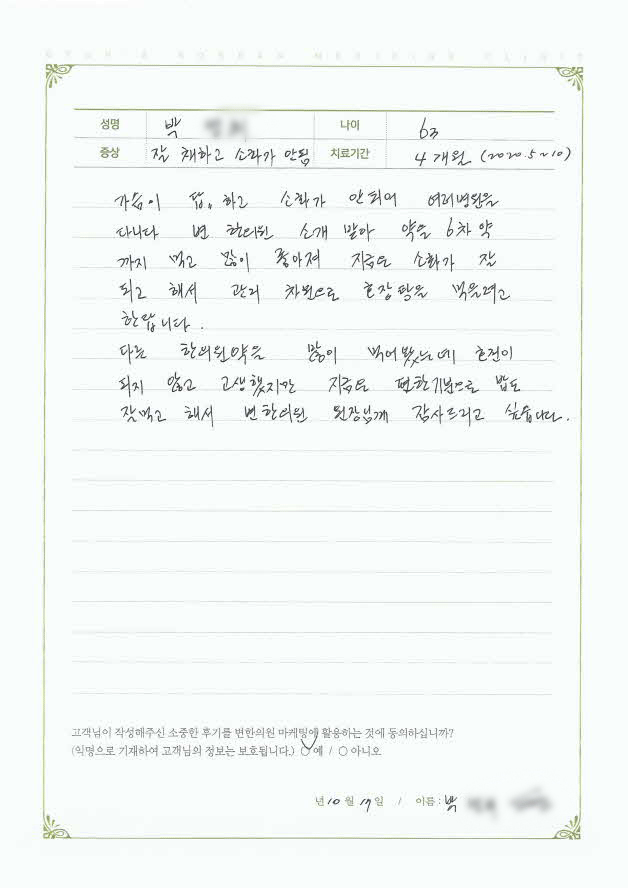 BYUN'S KOREAN MEDICINE CLINIC
성명 박 나이 63
증상 잘 채하고 소화가 안됨 치료기간 4개월 (2020.5~10)
가슴이 답。하고 소화가 안되어 여러병원을
다니다 변 한의원 소개 받아 약을 6차 약
까지 먹고 많이 좋아져 지금도 소화가 잘
되고 해서 관리 차원으로 환을 먹을려고
한답니다.
다른 한의원약을 많이 먹어봤는데 효전이
되지 않고 고생했지만 지금도 편한기분으로 밥도
잘먹고 해서 변한의원 원장님께 감사드리고 싶습니다.
고객님이 작성해주신 소중한 후기를 변한의원 마케팅에 활용하는 것에 동의하십니까?
(익명으로 기재하여 고객님의 정보는 보호됩니다.) ○ 예 / ○ 아니오
년 10 월 17 일 / 이름 : 박